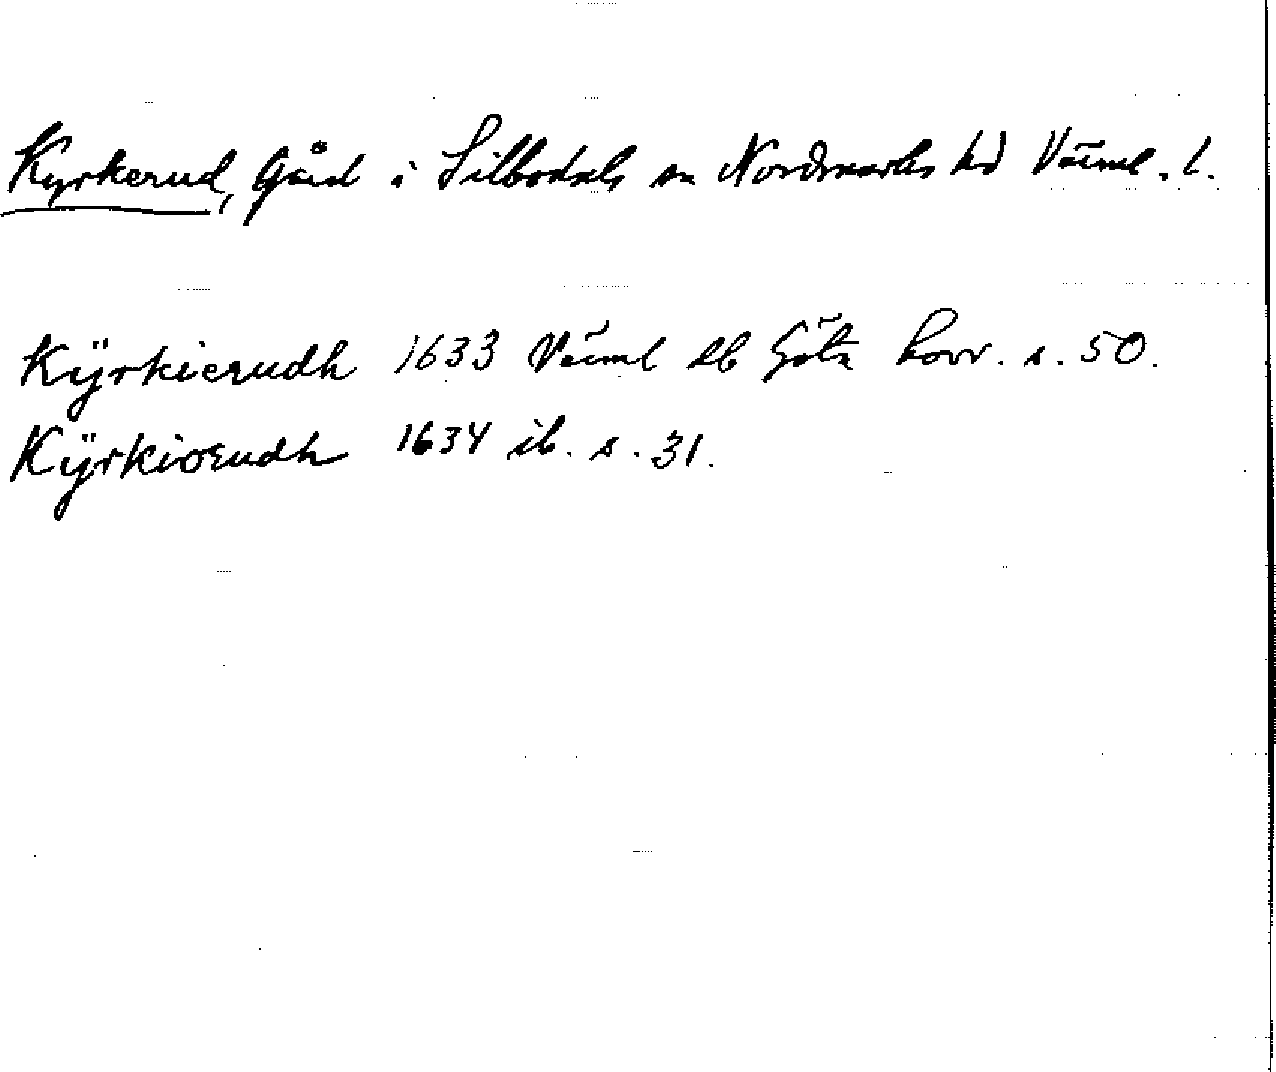 Kyrkerud, Gård i Silbodals sn Nordmarks hd Värml. l.
Kÿrkierudh 1633 Värml db Göta hovr. s. 50.
Kÿrkiorudh 1634 ib. s. 31.